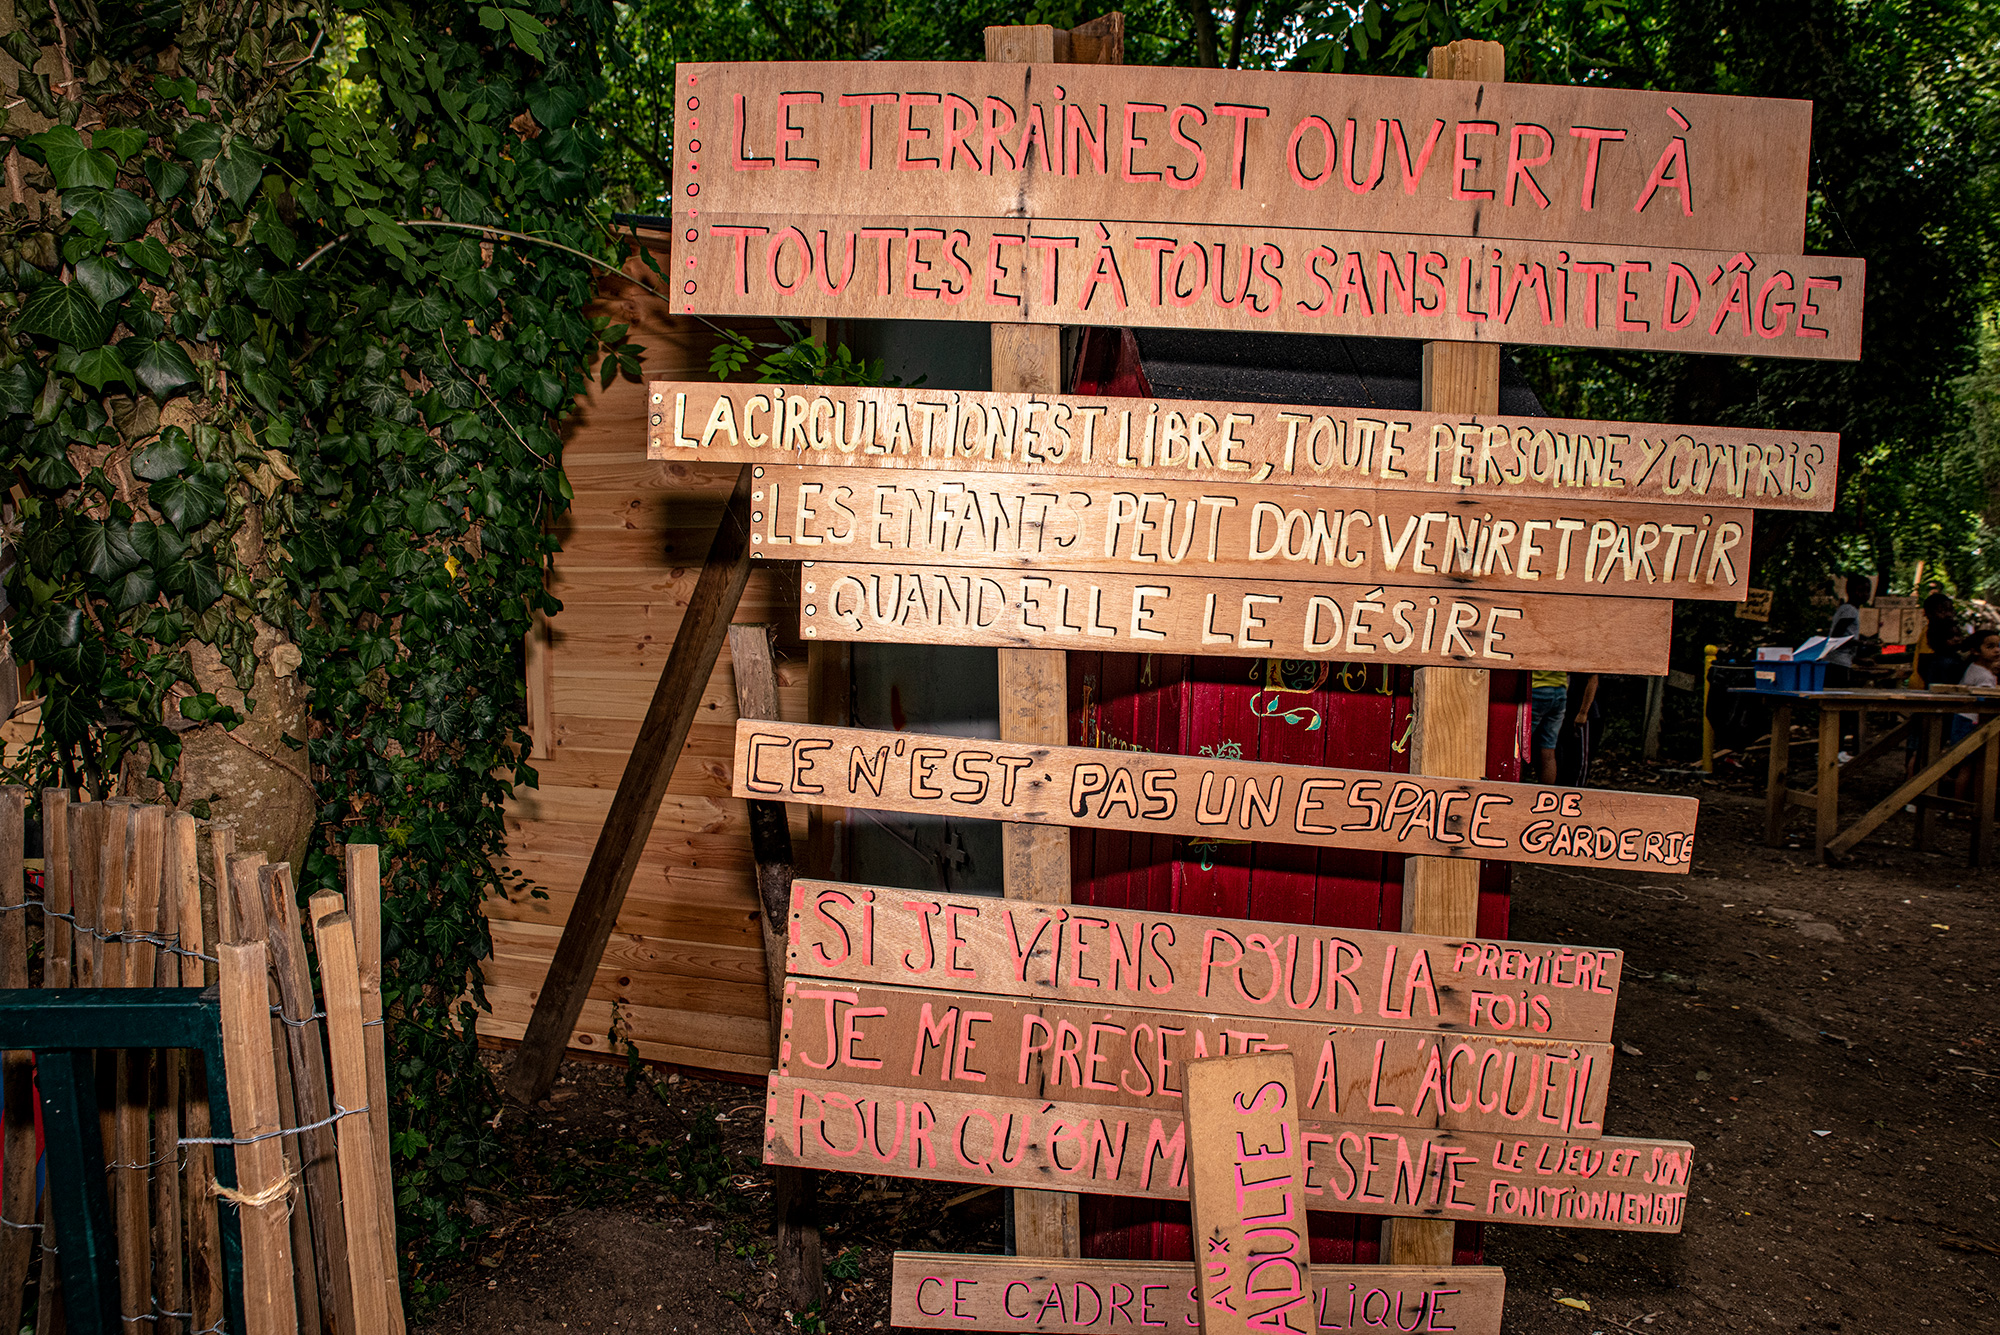 LE TERRAIN EST OUVERT À
TOUTES ET À TOUS SANS LIMITE D'ÂGE
LA CIRCULATION EST LIBRE, TOUTE PERSONNE Y COMPRIS
LES ENFANTS PEUT DONC VENIR ET PARTIR
QUAND ELLE LE DÉSIRE
CE N'EST PAS UN ESPACE DE
GARDERIE
SI JE VIENS POUR LA PREMIÈRE
FOIS
JE ME PRÉSENTE À L'ACCUEIL
POUR QU'ON M ÉSENTE LE LIEU ET SON
FONCTIONNEMENT
CE CADRE S PLIQUE
AUX
ADULTES